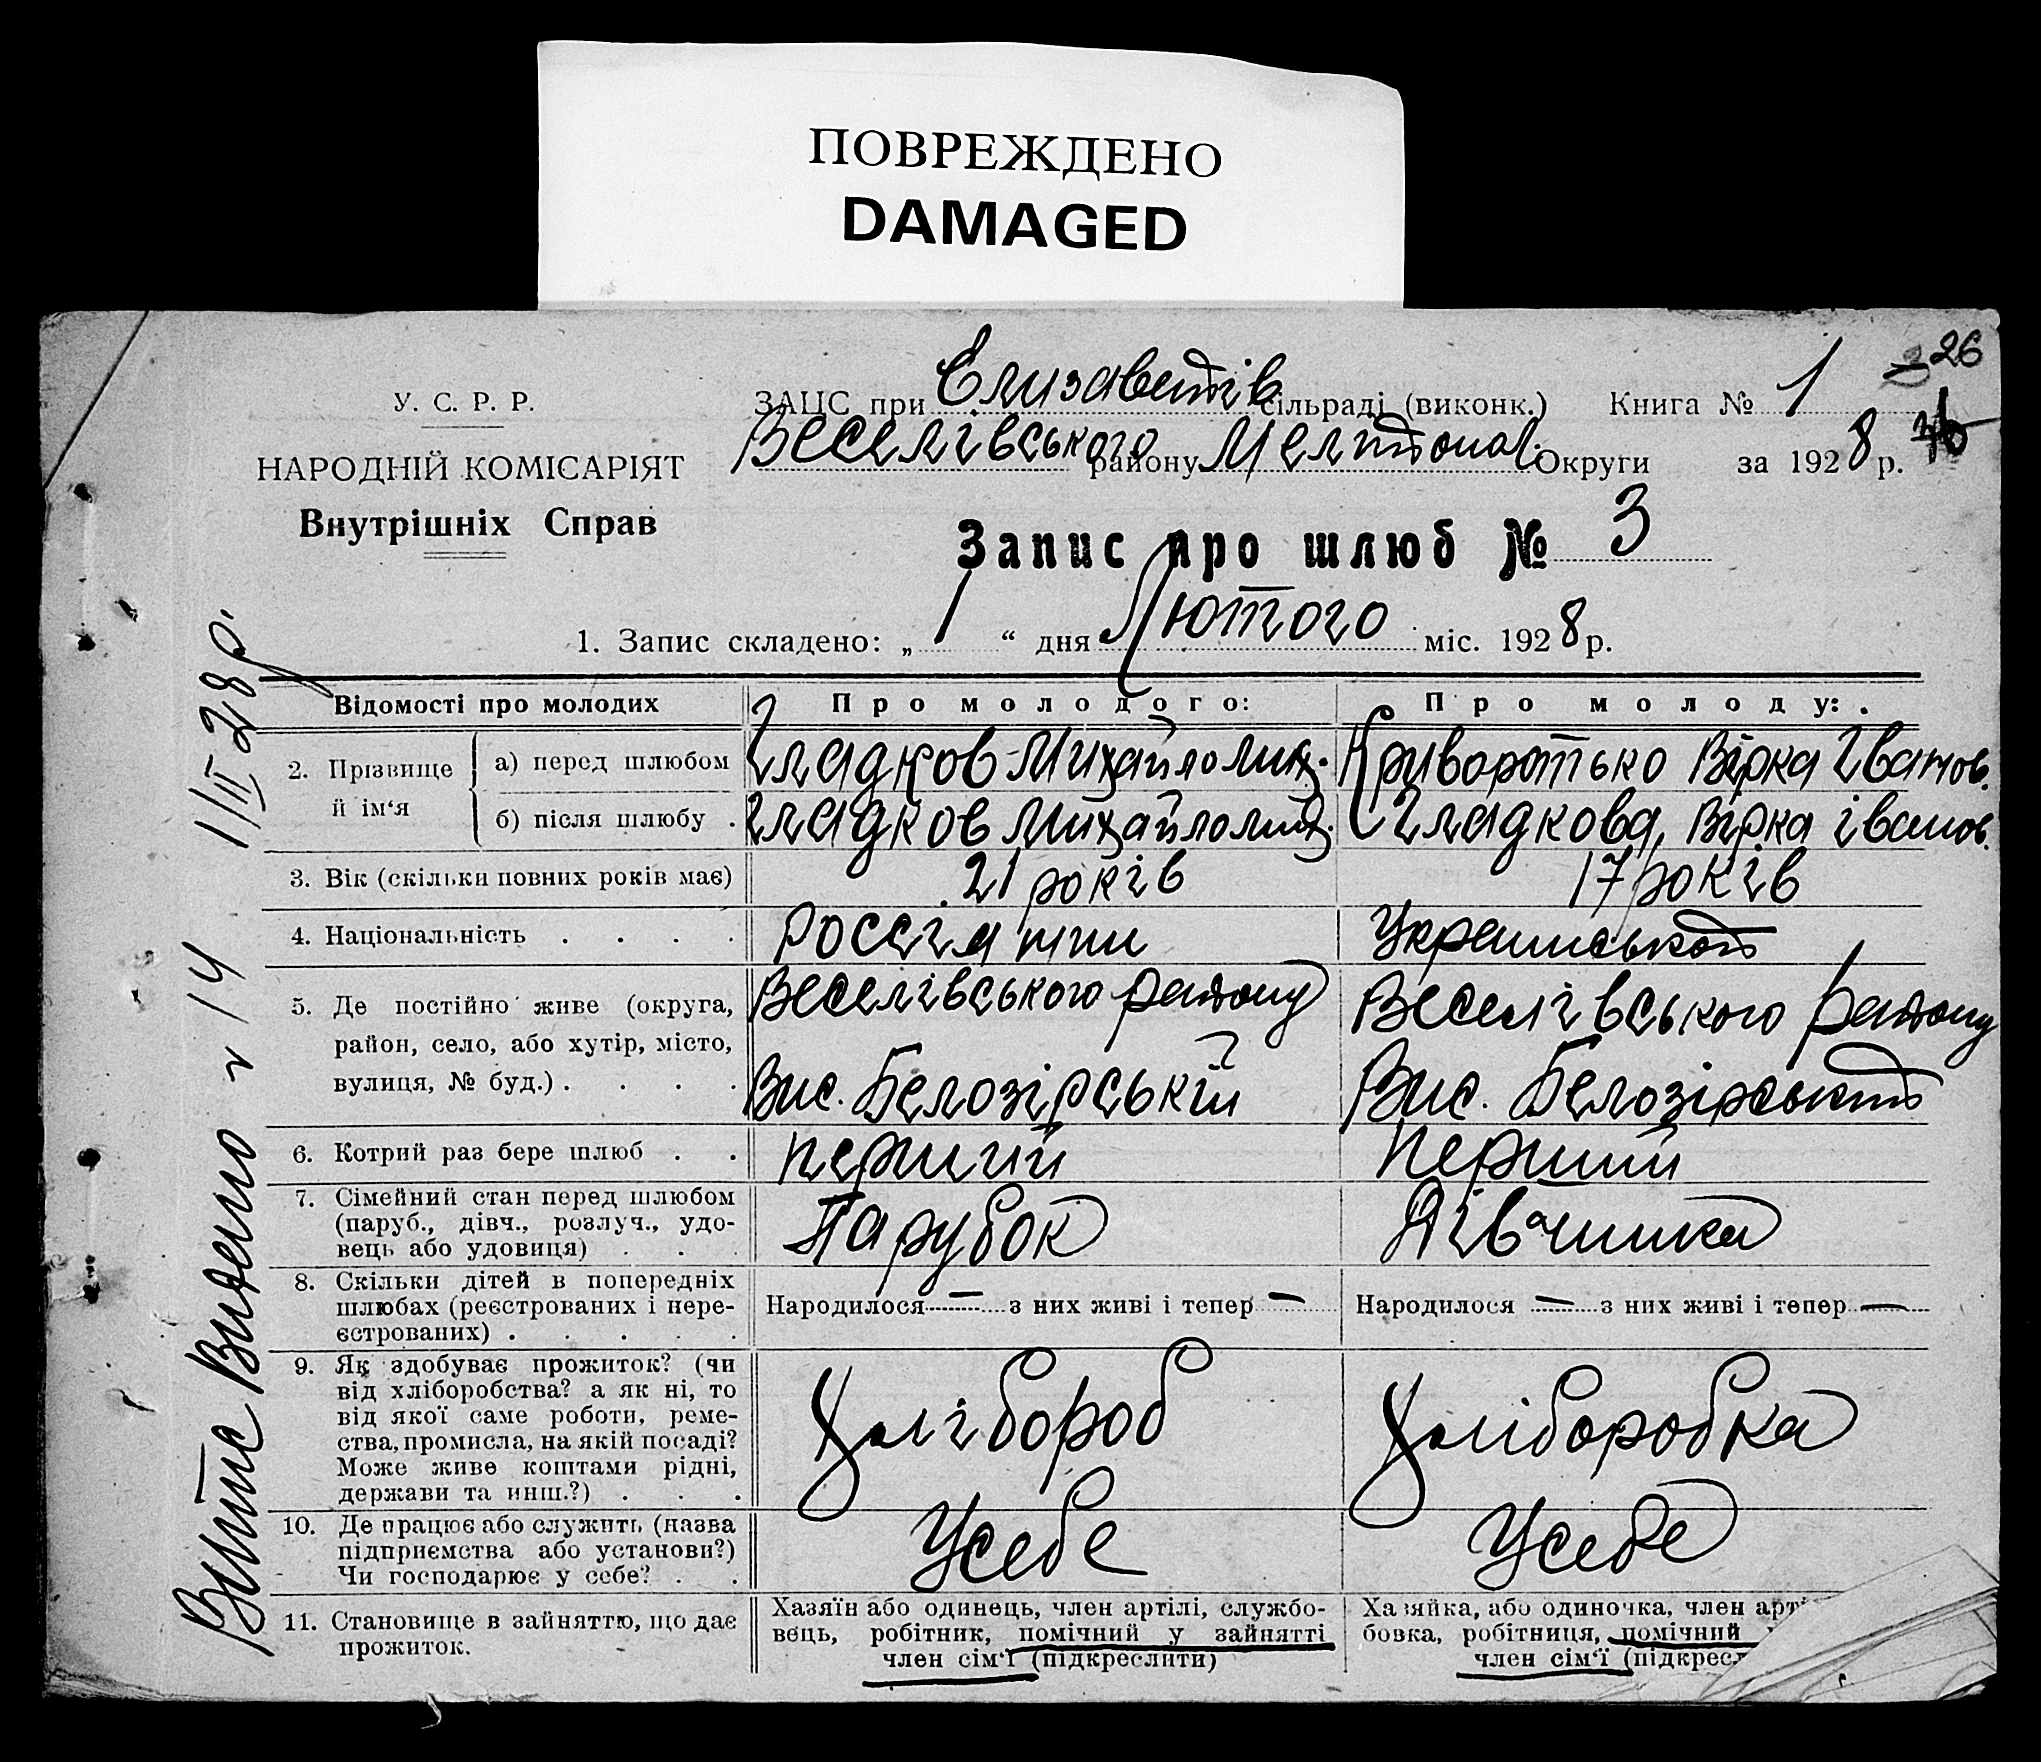 ПОВРЕЖДЕНО
DAMAGED
У. С. Р. Р.
НАРОДНІЙ КОМІСАРІЯТ
Внутрішніх Справ
ЗАЦС при Єлизаветів сільраді (виконк.) Книга № 1 26
Веселівського району Мелітопол. Округи за 1928 р.
Запис про шлюб № 3
1. Запис складено: „ 1 “ дня Лютого міс. 1928 р.
Відомості про молодих
Про молодого:
Про молоду:
2. Прізвище й ім‘я
а) перед шлюбом
Гладков Михайло
Криворотько Вірка Іванов.
б) після шлюбу
Гладков Михайло
Гладкова, Вірка іванов.
3. Вік (скільки повних років має)
21 років
17 років
4. Національність . . . .
Украинської
5. Де постійно живе (округа,
район, село, або хутір, місто,
вулиця, № буд.) . . . .
Веселівського району
Вис. Белозірській
Веселівського району
Вис. Белозірської
6. Котрий раз бере шлюб . .
перший
перший
7. Сімейний стан перед шлюбом
(паруб., дівч., розлуч., удо-
вець або удовиця) . . .
Парубок
Дівчинка
8. Скільки дітей в попередніх
шлюбах (реєстрованих і нере-
єстрованих) . . . . .
Народилося — з них живі і тепер —
Народилося — з них живі і тепер —
9. Як здобуває прожиток? (чи
від хліборобства? а як ні, то
від якої саме роботи, реме-
ства, промисла, на якій посаді?
Може живе коштами рідні,
держави та инш.?) . . .
Хлібороб
Хліборобка
10. Де працює або служить (назва
підприємства або установи?)
Чи господарює у себе? . .
Усебе
Усебе
11. Становище в зайняттю, що дає
прожиток.
Хазяїн або одинець, член артілі, службо-
вець, робітник, помічний у зайнятті
член сім‘ї (підкреслити)
Хазяйка, або одиночка, член арті
бовка, робітниця, помічний
член сім‘ї (підкресл
Витяг Видано 14 1/II 28 р.